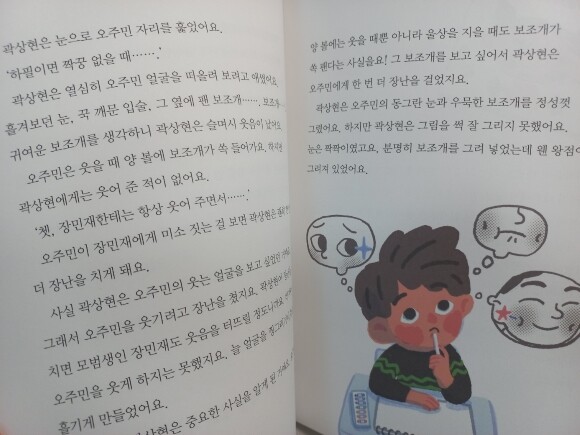 곽상현은 눈으로 오주민 자리를 훑었어요.
'하필이면 짝꿍 없을 때…….'
곽상현은 열심히 오주민 얼굴을 떠올려 보려고 애썼어요.
흘겨보던 눈, 꾹 깨문 입술, 그 옆에 팬 보조개……. 보조개…
귀여운 보조개를 생각하니 곽상현은 슬며시 웃음이 났어요.
오주민은 웃을 때 양 볼에 보조개가 쏙 들어가요. 하지만
곽상현에게는 웃어 준 적이 없어요.
'쳇, 장민재한테는 항상 웃어 주면서…….'
오주민이 장민재에게 미소 짓는 걸 보면 곽상현은
더 장난을 치게 돼요.
사실 곽상현은 오주민의 웃는 얼굴을 보고 싶었던
그래서 오주민을 웃기려고 장난을 쳤지요. 곽상현이
치면 모범생인 장민재도 웃음을 터뜨릴 정도니까요.
오주민을 웃게 하지는 못했지요. 늘 얼굴을
흘기게 만들었어요.
중요한 사실을 알게 된
양 볼에는 웃을 때뿐 아니라 울상을 지을 때도 보조개가
쏙 팬다는 사실을요! 그 보조개를 보고 싶어서 곽상현은
오주민에게 한 번 더 장난을 걸었지요.
곽상현은 오주민의 동그란 눈과 우묵한 보조개를 정성껏
그렸어요. 하지만 곽상현은 그림을 썩 잘 그리지 못했어요.
눈은 짝짝이였고요, 분명히 보조개를 그려 넣었는데 웬 왕점이
그려져 있었어요.